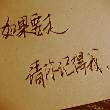 如果要走
请你记得我